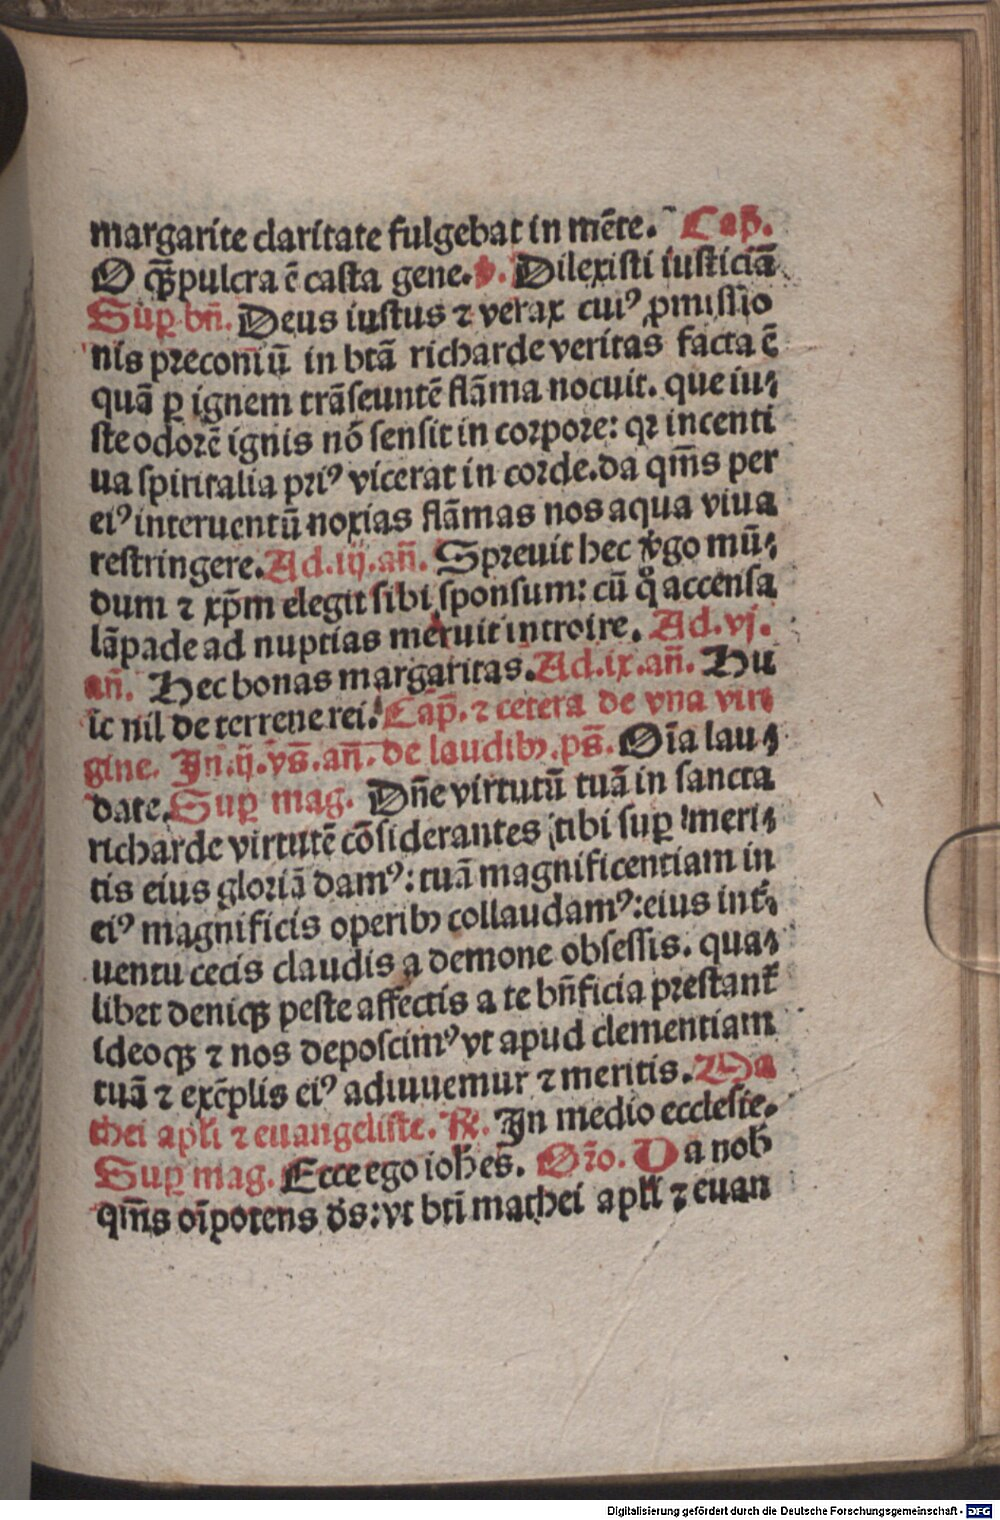 margarite claritate fulgebat in mēte. Cap̄.
O q̄ꝫ pulcra ē casta gene. v. Dilexisti iusticiā
Sup bn̄. Deus iustus ⁊ verax cuiꝰ ꝓmissio
nis preconiū in btā richarde veritas facta ē
quā ꝑ ignem trāseuntē flāma nocuit. que iu⸗
ste odorē ignis nō sensit in corpore: qꝛ incenti
ua spiritalia priꝰ vicerat in corde. da qm̄s per
eiꝰ interuentū noxias flāmas nos aqua viua
restringere. Ad.iij.an̄. Spreuit hec v̓go mū⸗
dum ⁊ xp̄m elegit sibi sponsum: cū q̊ accensa
lāpade ad nuptias meruit introire. Ad.vj.
an̄. Hec bonas margaritas. Ad.ix.an̄. Hu
ic nil de terrene rei. Cap̄. ⁊ cetera de vna vir⸗
gine. In.ij.vs̄.an̄. de laudibꝫ.ps̄. Oīa lau⸗
date. Sup mag. Dn̄e virtutū tuā in sancta
richarde virtutē cōsiderantes tibi suꝑ meri⸗
tis eius gloriā damꝰ: tuā magnificentiam in
eiꝰ magnificis operibꝫ collaudamꝰ: eius int̓⸗
uentu cecis claudis a demone obsessis. qua⸗
libet deniqꝫ peste affectis a te bn̄ficia prestant̄
Ideoqꝫ ⁊ nos deposcimꝰ vt apud clementiam
tuā ⁊ exēplis eiꝰ adiuuemur ⁊ meritis. Ma
thei apli ⁊ euangeliste. ℟. In medio ecclesie.
Sup mag. Ecce ego ioh̄es. Or̄o. Da nob̄
qm̄s oīpotens ds̄: vt bti mathei apli ⁊ euan
Digitalisierung gefördert durch die Deutsche Forschungsgemeinschaft - DFG